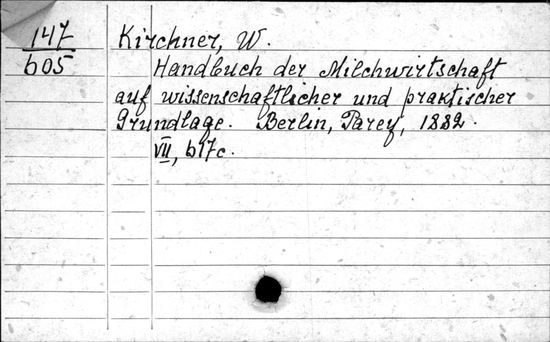 147
605
Kirchner, W.
Handbuch der Milchwirtschaft
auf wissenschaftlicher und praktischer
Grundlage. Berlin, Parey, 1882.
VII, 617c.